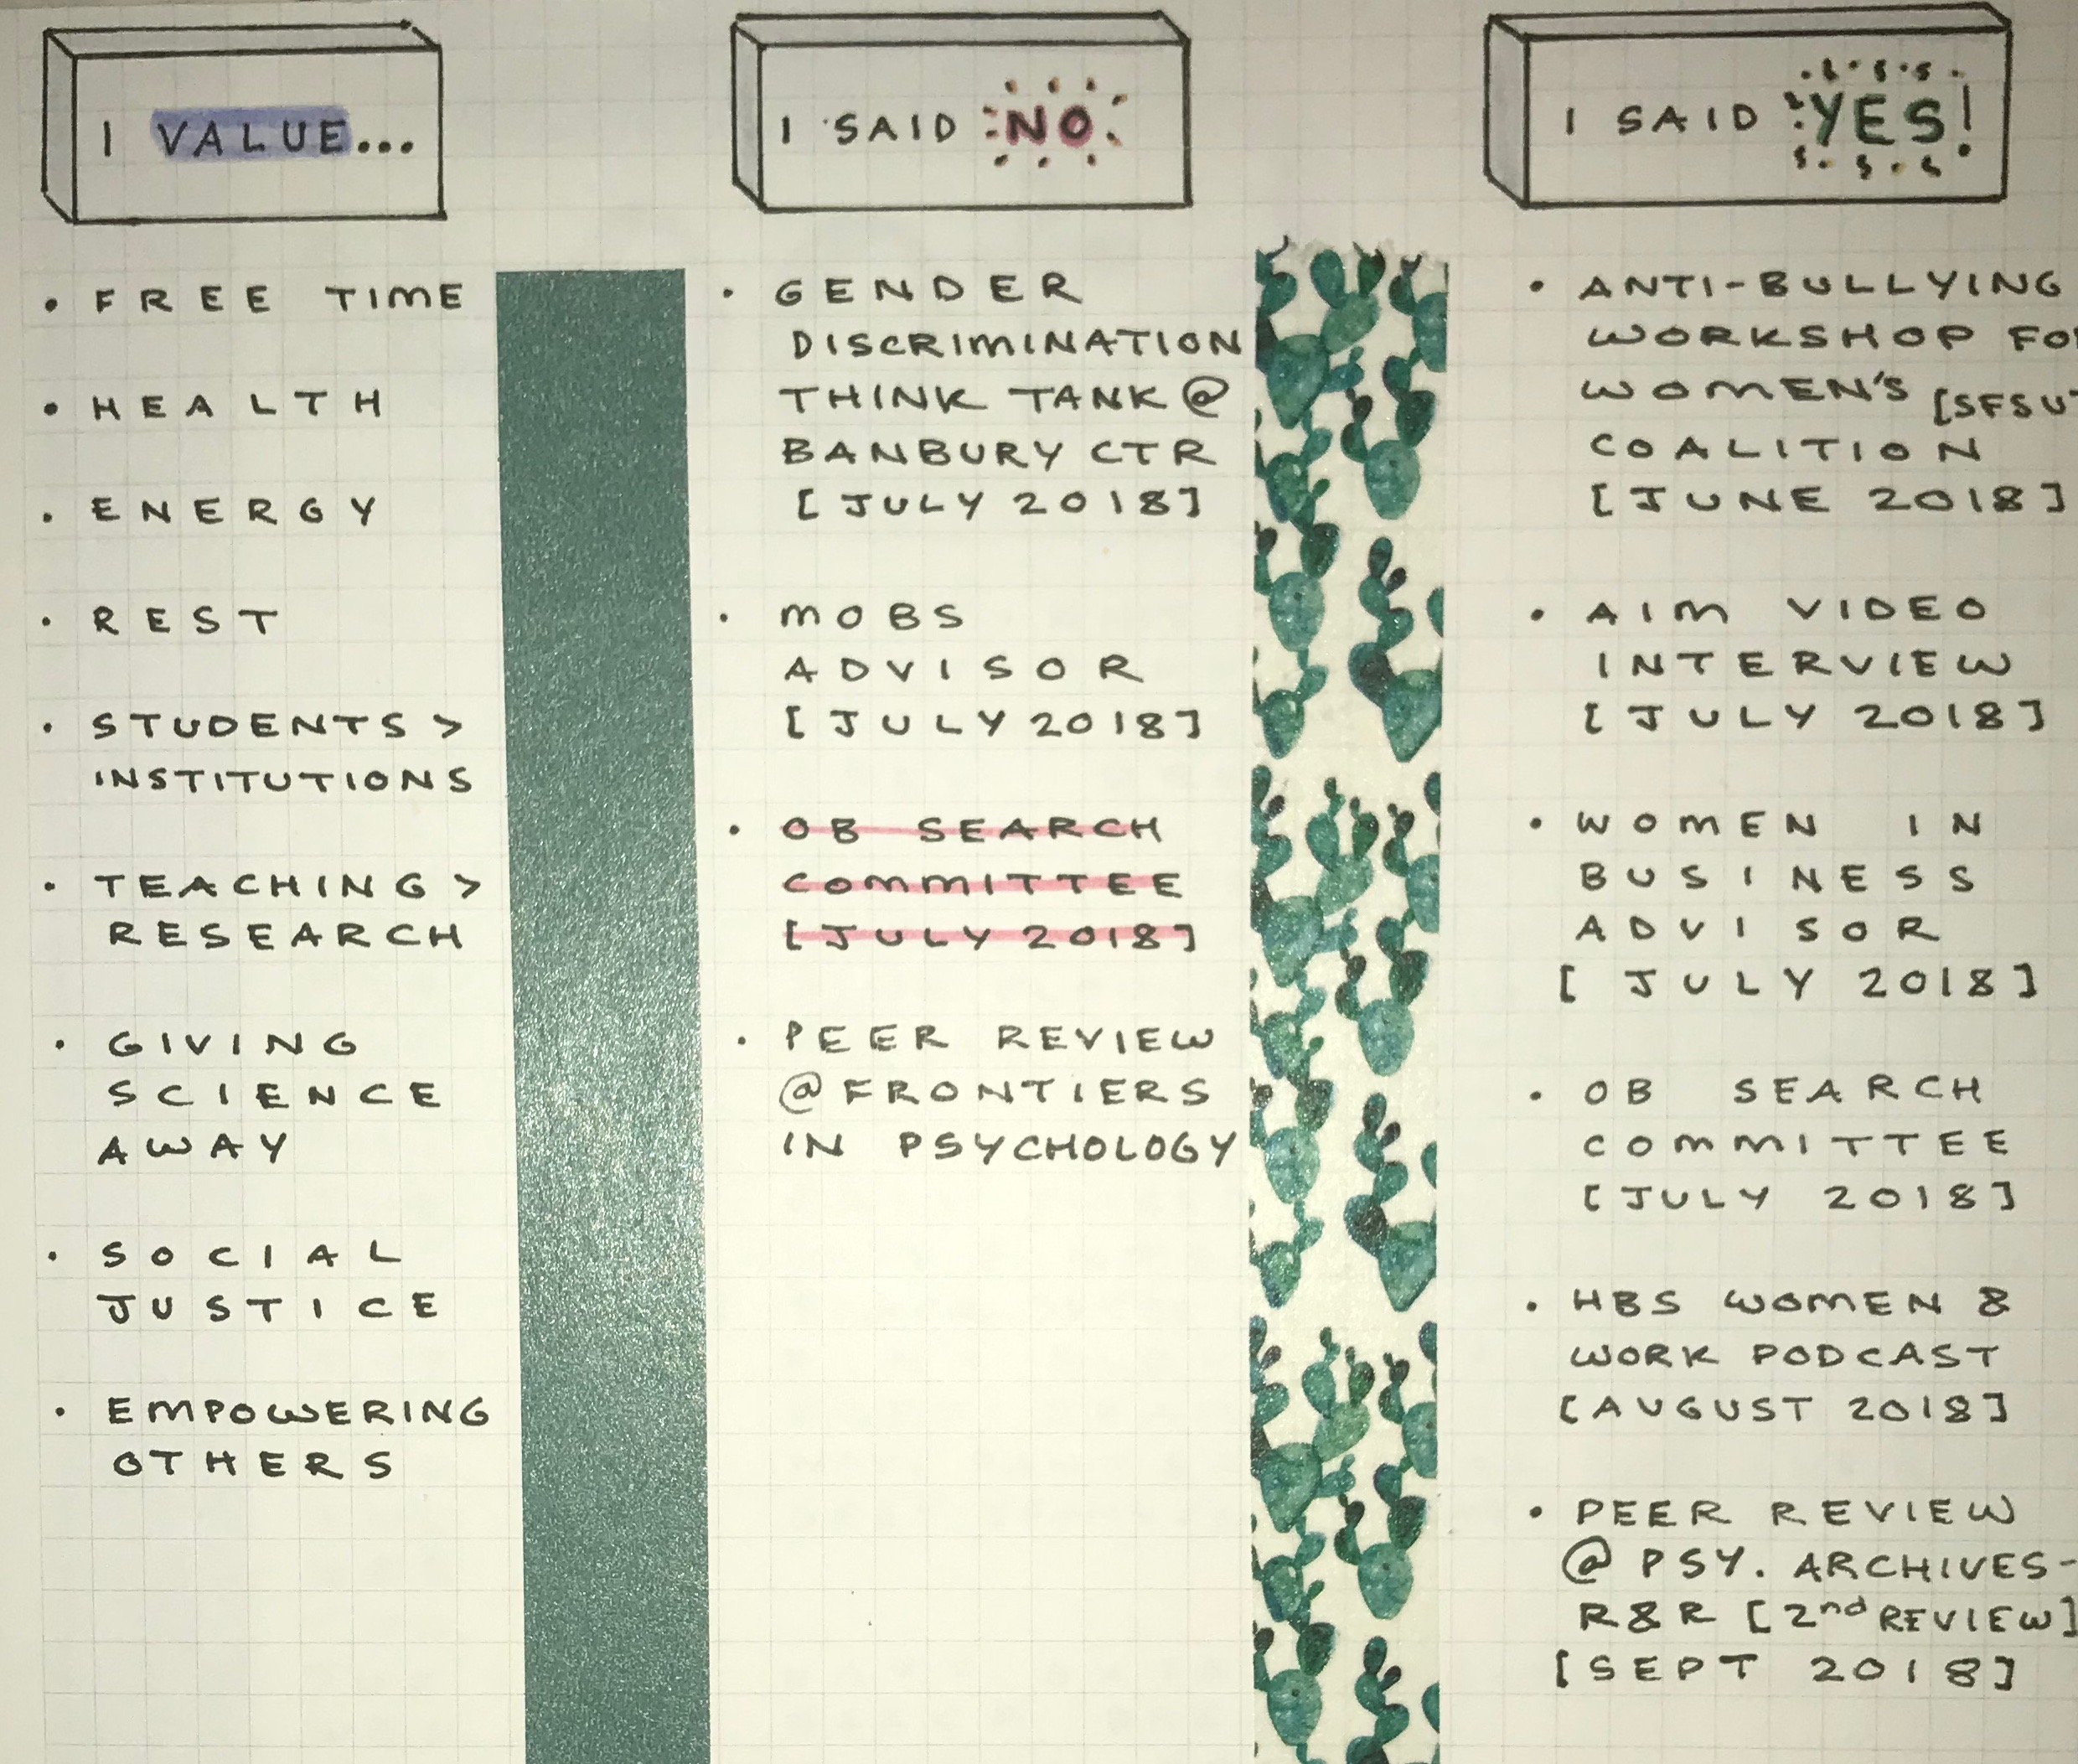 I VALUE...
• FREE TIME
• HEALTH
• ENERGY
• REST
• STUDENTS >
INSTITUTIONS
• TEACHING >
RESEARCH
• GIVING
SCIENCE
AWAY
• SOCIAL
JUSTICE
• EMPOWERING
OTHERS
I SAID NO
• GENDER
DISCRIMINATION
THINK TANK @
BANBURY CTR
[JULY 2018]
• MOBS
ADVISOR
[JULY 2018]
• OB SEARCH
COMMITTEE
[JULY 2018]
• PEER REVIEW
@ FRONTIERS
IN PSYCHOLOGY
I SAID YES!
• ANTI-BULLYING
WORKSHOP
WOMEN'S
COALITION
[JUNE 2018]
• AIM VIDEO
INTERVIEW
[JULY 2018]
• WOMEN IN
BUSINESS
ADVISOR
[JULY 2018]
• OB SEARCH
COMMITTEE
[JULY 2018]
• HBS WOMEN &
WORK PODCAST
[AUGUST 2018]
• PEER REVIEW
@ PSY. ARCHIVES-
R&R [2nd REVIEW]
[SEPT 2018]